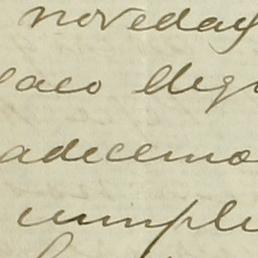 novedad
aco elegi
adecemo
cumpli